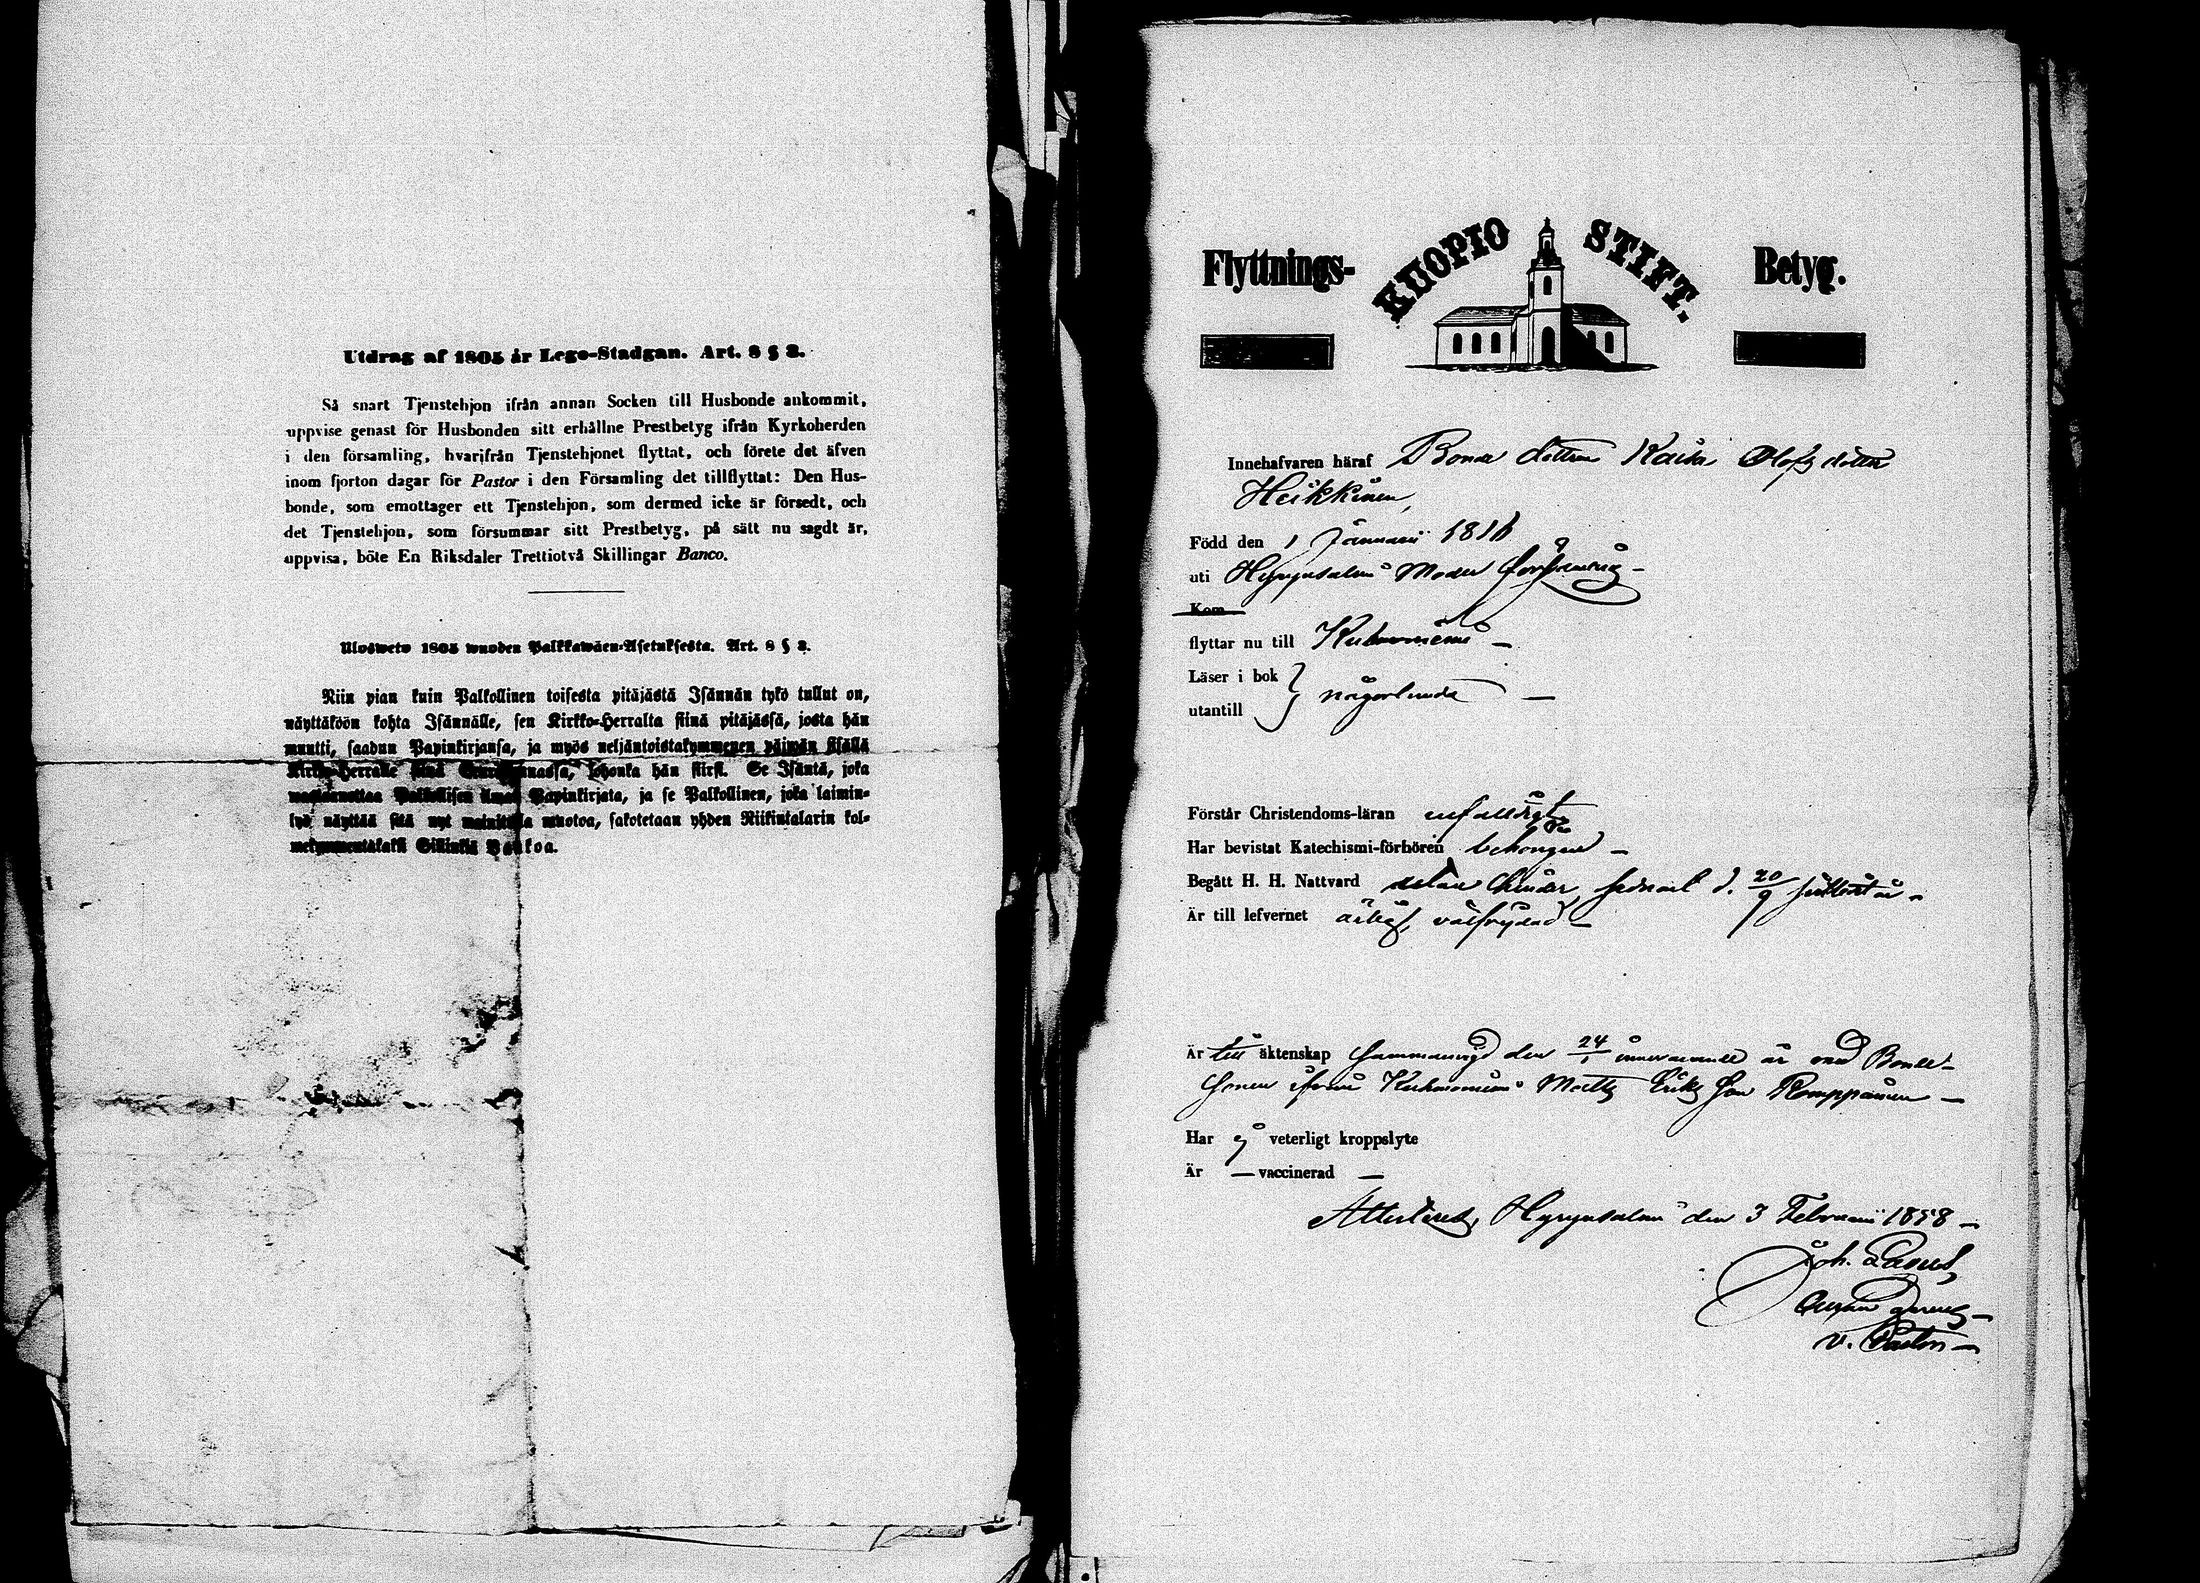 Utdrag af 1805 år Lego-Stadgan. Art. 8 § 2.
Så snart Tjenstehjon ifrån annan Socken till Husbonde ankommit,
uppvise genast för Husbonden sitt erhållne Prestbetyg ifrån Kyrkoherden
i den församling, hvarifrån Tjenstehjonet flyttat, och förete det äfven
inom fjorton dagar för Pastor i den Församling det tillflyttat: Den Hus-
bonde, som emottager ett Tjenstehjon, som dermed icke är försedt, och
det Tjenstehjon, som försummar sitt Prestbetyg, på sätt nu sagdt är,
uppvisa, böte En Riksdaler Trettiotvå Skillingar Banco.
Ulosweto 1805 wuoden Palkkawäen-Asetuksesta. Art. 8 § 2.
Niin pian kuin Palkollinen toisesta pitäjästä Isännän tykö tullut on,
näyttäköön kohta Isännälle, sen Kirkko-Herralta siinä pitäjässä, josta hän
muutti, saadun Papinkirjansa, ja myös neljäntoistakymmenen päiwän sisällä
Kirkko-Herralle siinä johonka hän siirsi. Se Isäntä, joka
Palkollisen ilman Papinkirjata, ja se Palkollinen, joka laimin-
lyö näyttää sitä nyt mainitulla muotoa, sakotetaan yhden Riikintalarin kol-
mekymmentäkaksi Sillinkiä Bankoa.
Flyttnings- KUOPIO STIFT. Betyg.
Innehafvaren häraf Bonde dottren Kaisa Olofsdotter
Heikkinen,
Född den 1 Januarii 1816
uti Hyrynsalmi Moder församling –
Kom
flyttar nu till Kuhmoniemi –
Läser i bok
utantill } någorlunda –
Förstår Christendoms-läran enfalldigt
Har bevistat Katechismi-förhören behörigen –
Begått H. H. Nattvard sednast d. 20/9 sistledet år.
Är till lefvernet ärlig, välfrejdad –
Är till äktenskap sammanvigd den 24/1 innevarande år med Bonde-
sonen ifrån Kuhmoniemi Matts Eriks son Romppainen –
Har ej veterligt kroppslyte
Är – vaccinerad –
Attesteras, Hyrynsalmi den 3 Februarii 1858 –
Joh.
v. Pastor –